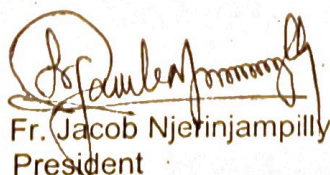 Fr. Jacob Njerinjampilly
President